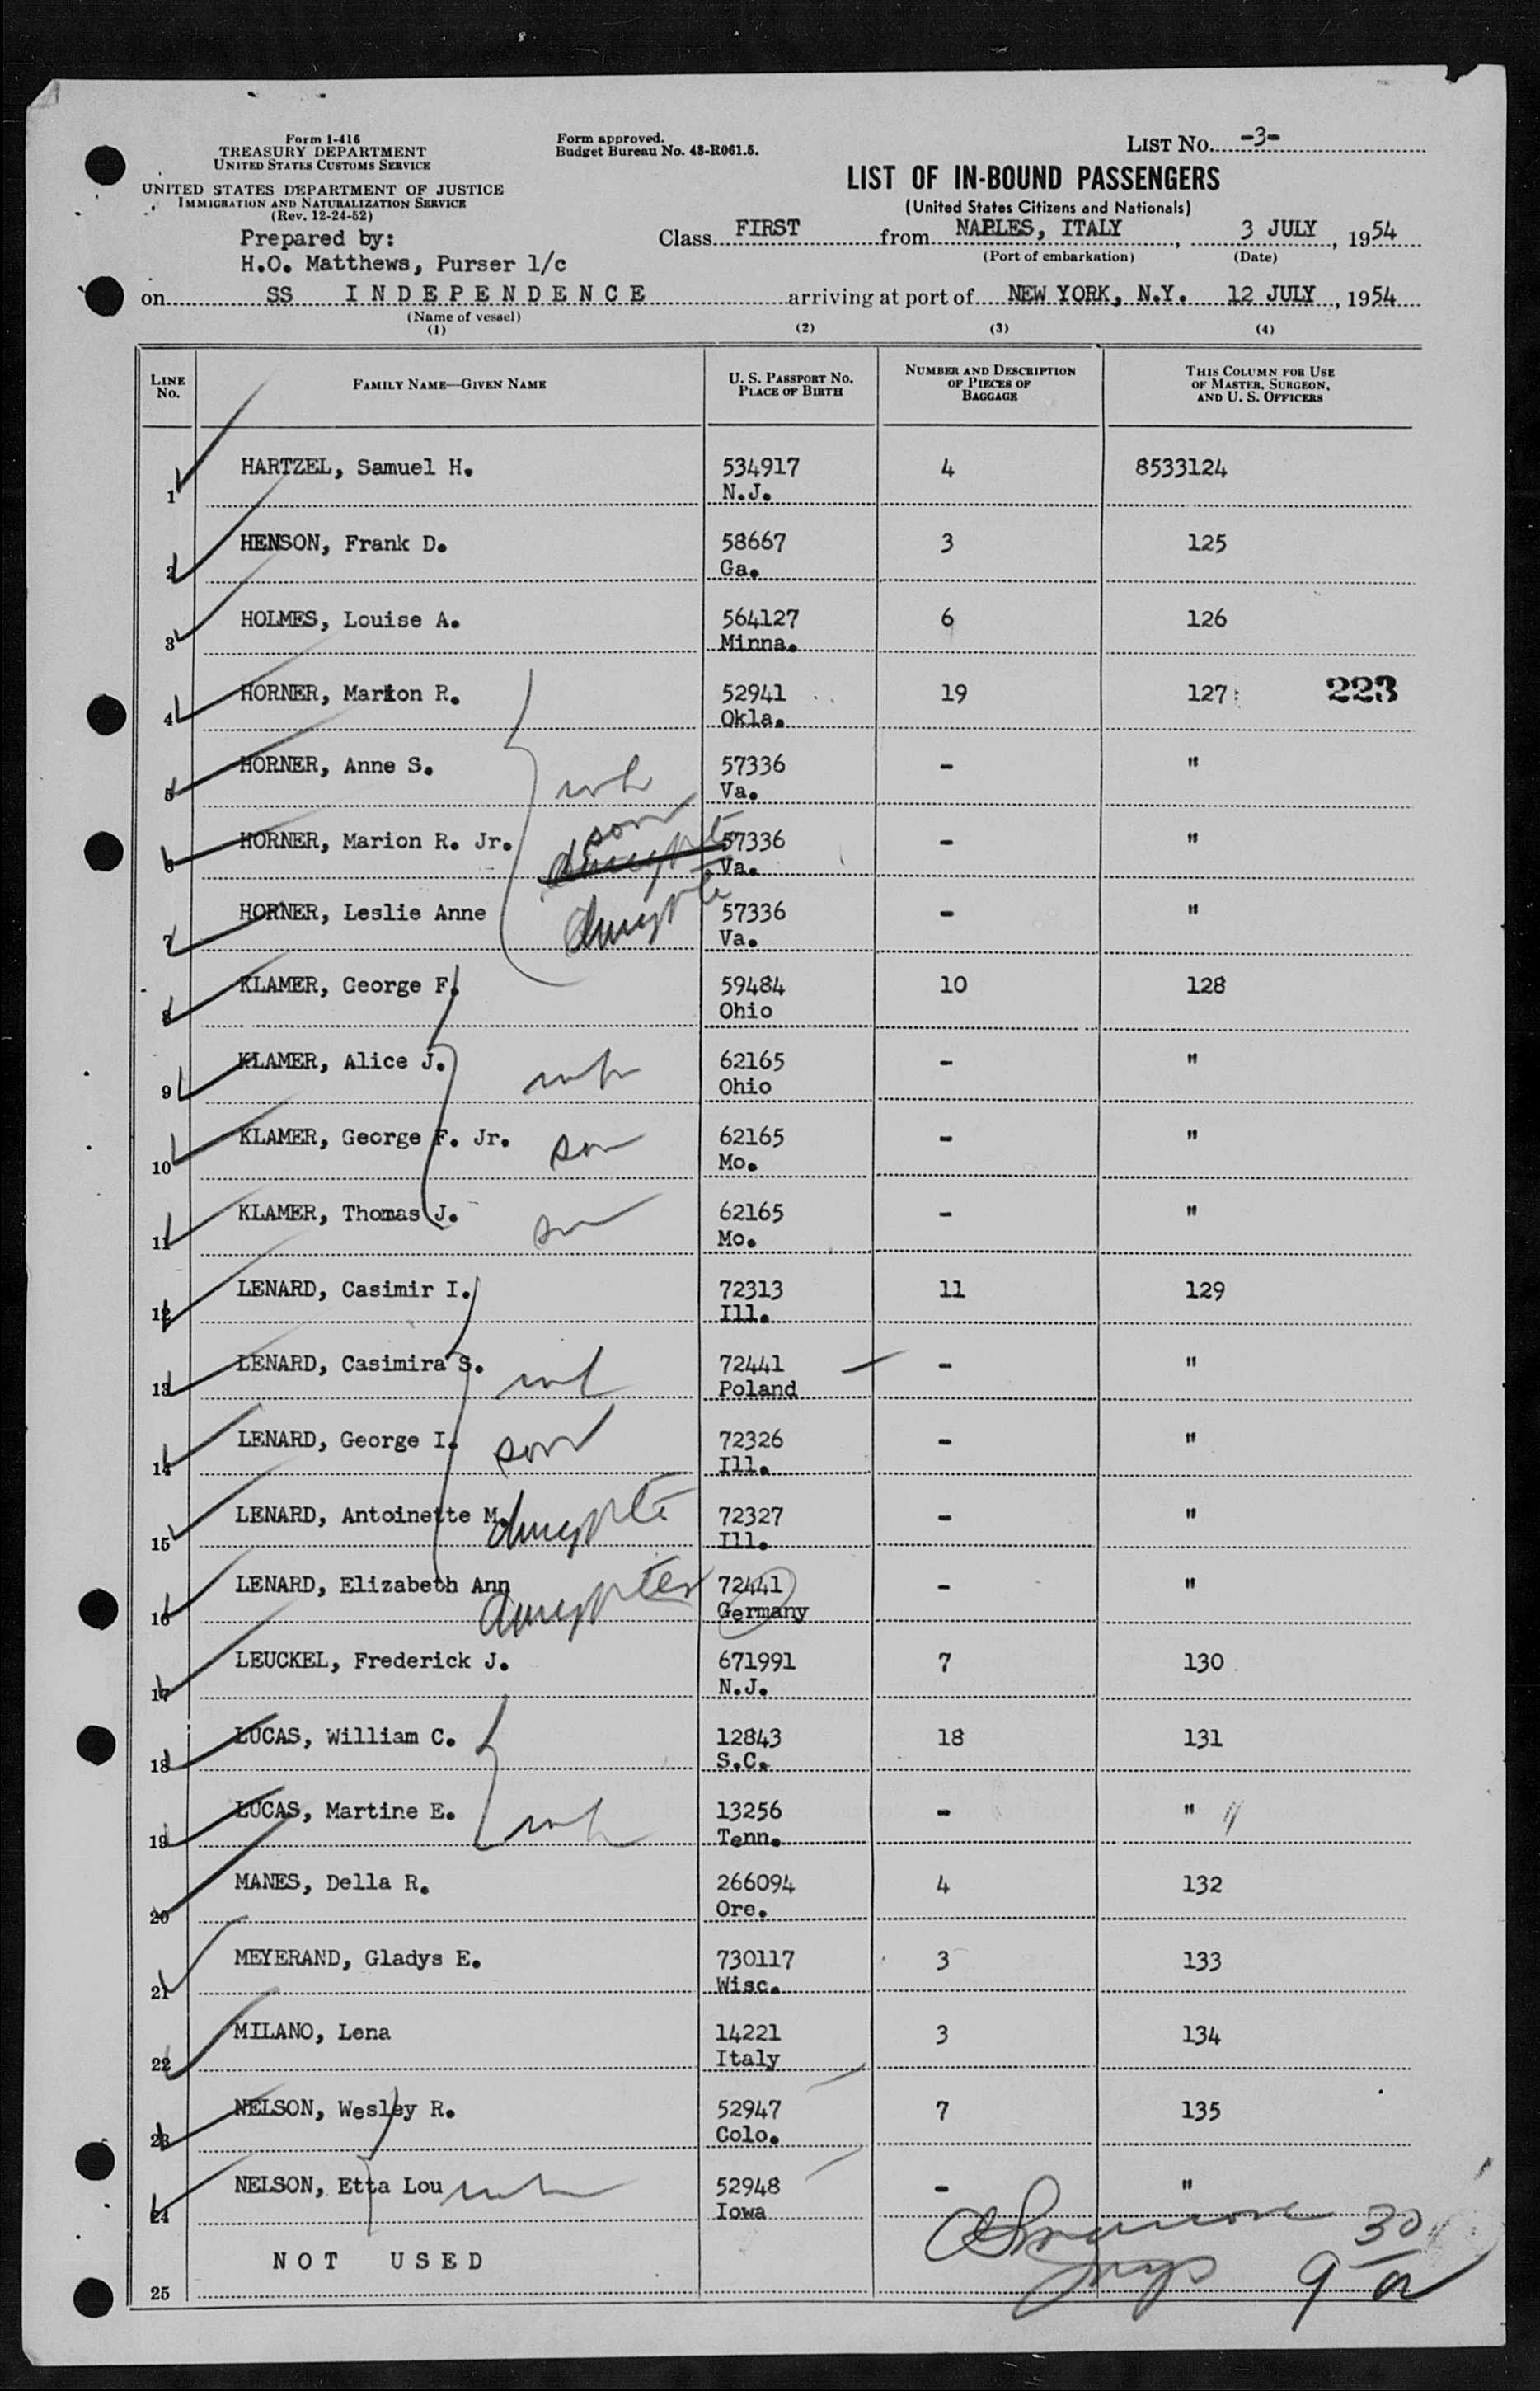 Form I-416
TREASURY DEPARTMENT
UNITED STATES CUSTOMS SERVICE
UNITED STATES DEPARTMENT OF JUSTICE
IMMIGRATION AND NATURALIZATION SERVICE
(Rev. 12-24-52)
Prepared by:
H.O. Matthews, Purser 1/c
Form approved.
Budget Bureau No. 43-R061.5.
LIST No. -3-
LIST OF IN-BOUND PASSENGERS
(United States Citizens and Nationals)
Class FIRST from NAPLES, ITALY, 3 JULY, 1954
(Port of embarkation) (Date)
on SS INDEPENDENCE arriving at port of NEW YORK, N.Y. 12 JULY, 1954
(Name of vessel)
(1) (2) (3) (4)
LINE No. FAMILY NAME—GIVEN NAME U. S. PASSPORT NO. PLACE OF BIRTH NUMBER AND DESCRIPTION OF PIECES OF BAGGAGE THIS COLUMN FOR USE OF MASTER, SURGEON, AND U. S. OFFICERS
1 HARTZEL, Samuel H. 534917 4 8533124
N.J.
2 HENSON, Frank D. 58667 3 125
Ga.
3 HOLMES, Louise A. 564127 6 126
Minna.
4 HORNER, Marion R. 52941 19 127 223
Okla.
5 HORNER, Anne S. 57336 - "
Va.
6 HORNER, Marion R. Jr. son 57336 - "
Va.
7 HORNER, Leslie Anne 57336 - "
Va.
8 KLAMER, George F. 59484 10 128
Ohio
9 KLAMER, Alice J. 62165 - "
Ohio
10 KLAMER, George F. Jr. son 62165 - "
Mo.
11 KLAMER, Thomas J. son 62165 - "
Mo.
12 LENARD, Casimir I. 72313 11 129
Ill.
13 LENARD, Casimira S. 72441 - "
Poland
14 LENARD, George I. son 72326 - "
Ill.
15 LENARD, Antoinette M. 72327 - "
Ill.
16 LENARD, Elizabeth Ann daughter 72441 - "
Germany
17 LEUCKEL, Frederick J. 671991 7 130
N.J.
18 LUCAS, William C. 12843 18 131
S.C.
19 LUCAS, Martine E. 13256 - "
Tenn.
20 MANES, Della R. 266094 4 132
Ore.
21 MEYERAND, Gladys E. 730117 3 133
Wisc.
22 MILANO, Lena 14221 3 134
Italy
23 NELSON, Wesley R. 52947 7 135
Colo.
24 NELSON, Etta Lou 52948 - "
Iowa
25 NOT USED
9 30